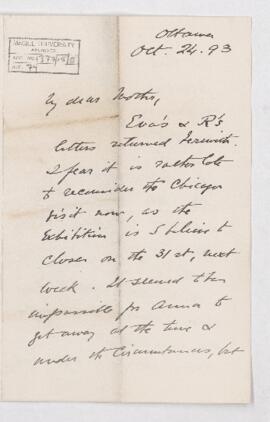 Ottawa
Oct. 24. 93
McGILL UNIVERSITY
ARCHIVES
ACC. NO.
REF. 74
My dear Mother,
Eva's & R's
letters returned herewith.
I fear it is rather late
to reconsider the Chicago
visit now, as the
Exhibition is to close
on the 31st, next
week. It seemed then
impossible for Anna to
get away at the time &
under the circumstances, but